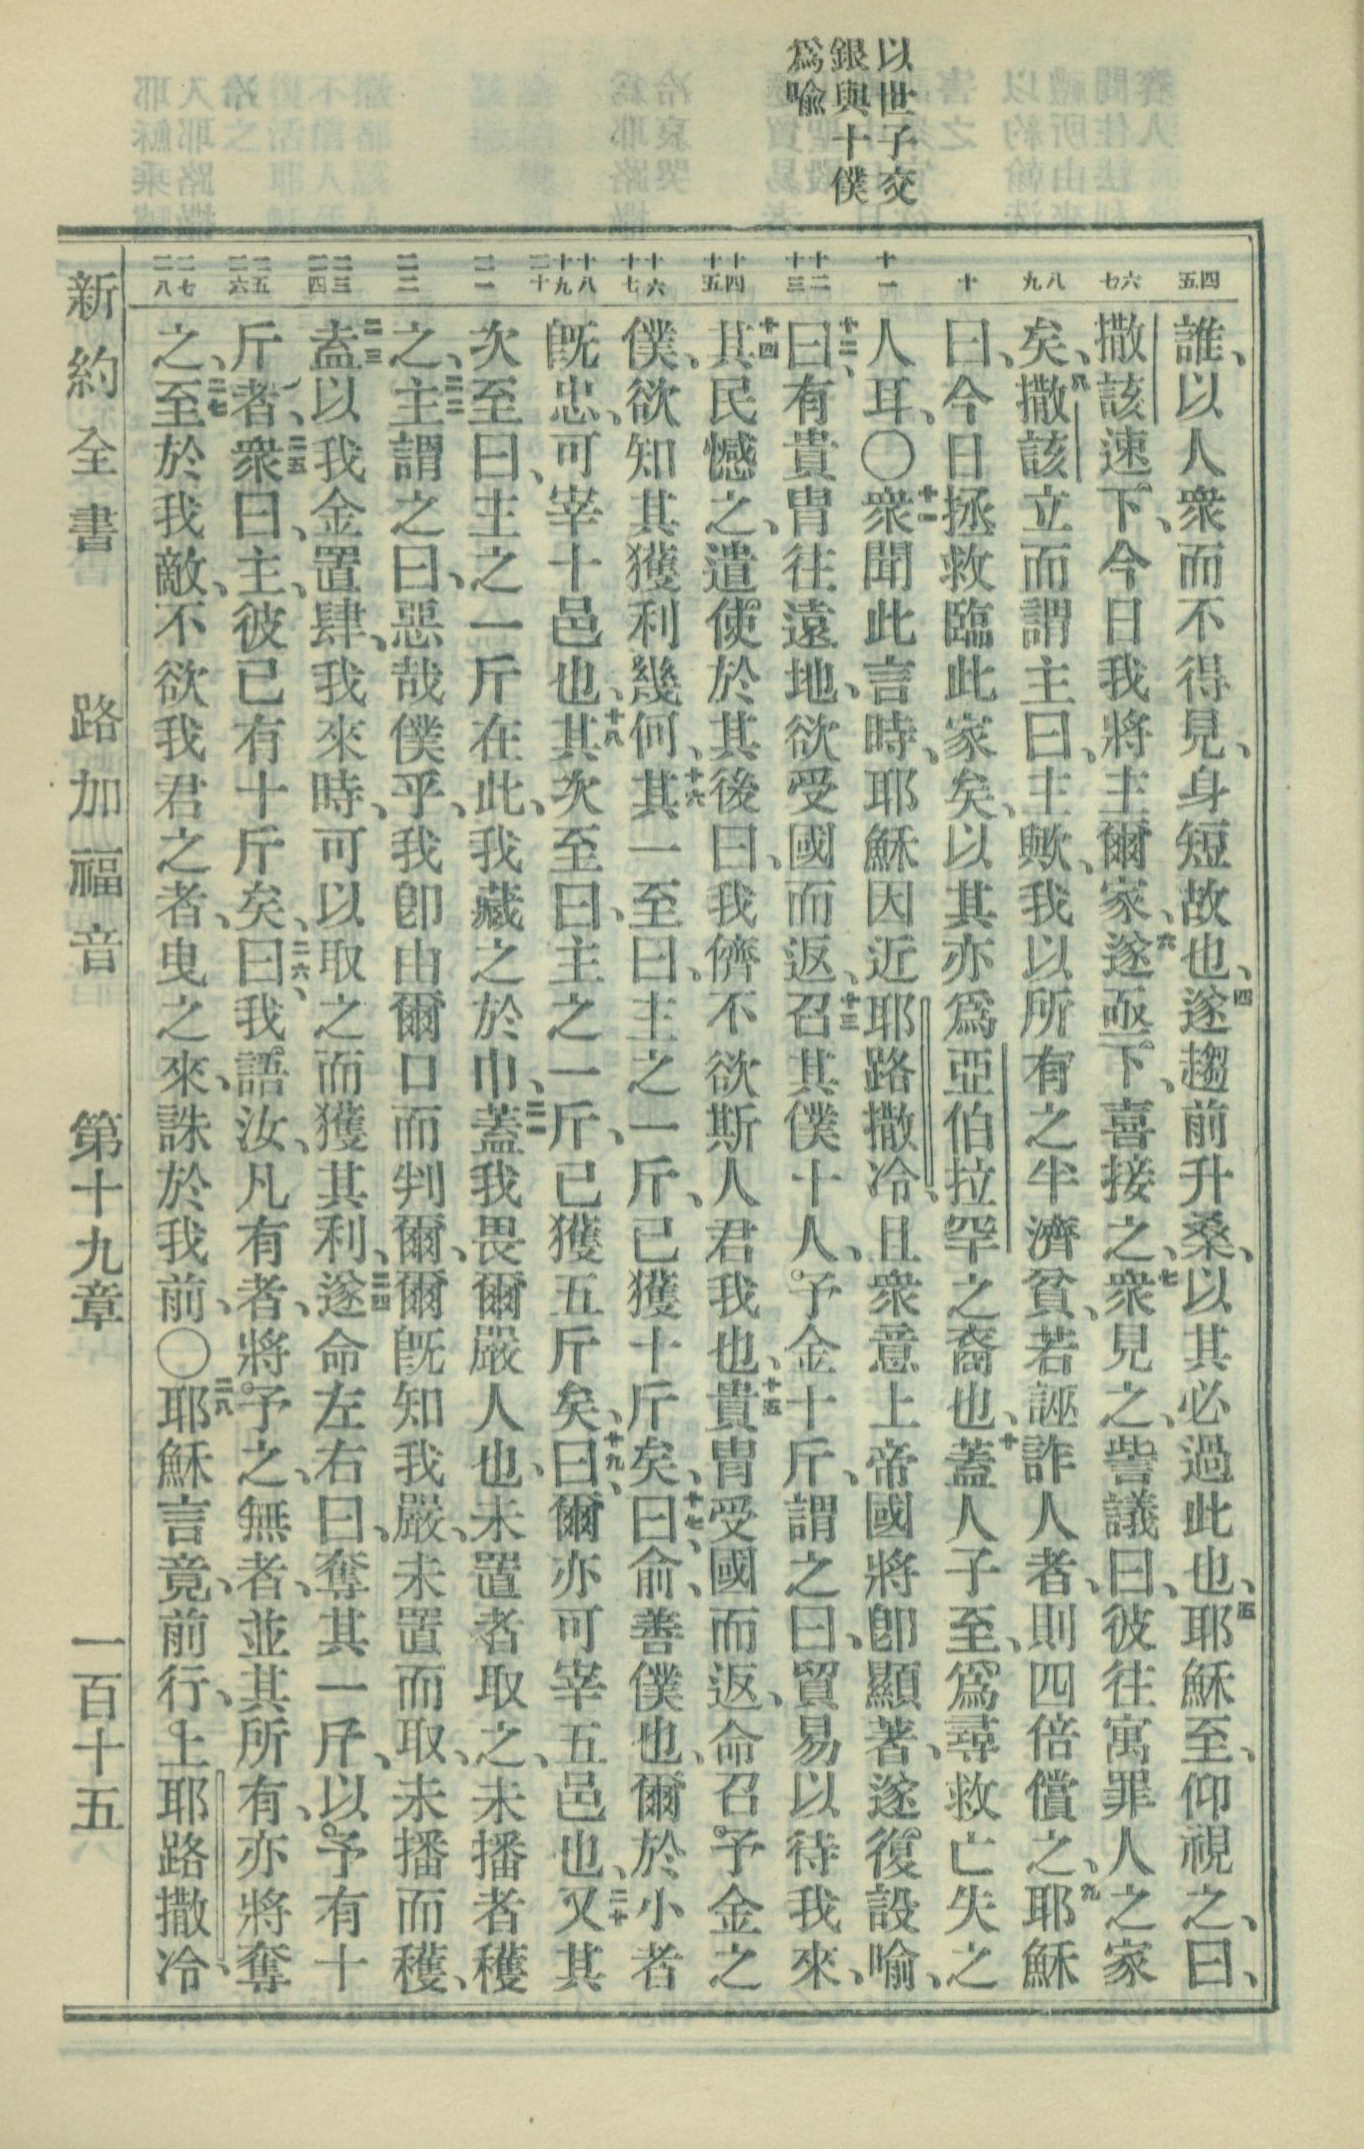 以世子交
銀與十僕
爲喻
四五
六七
八九
十
十一
十二十三
十四十五
十六十七
十八十九二十
二一
二二
二三二四
二五二六
二七二八
誰、以人衆而不得見、身短故也、四遂趨前升桑、以其必過此也、五耶穌至、仰視之、曰、
撒該速下、今日我將主爾家、六遂亟下、喜接之、七衆見之、訾議曰、彼往寓罪人之家
矣、八撒該立而謂主曰、主歟、我以所有之半濟貧、若誣詐人者、則四倍償之、九耶穌
曰、今日拯救臨此家矣、以其亦爲亞伯拉罕之裔也、十蓋人子至、爲尋救亡失之
人耳、〇十一衆聞此言時、耶穌因近耶路撒冷、且衆意上帝國將卽顯著、遂復設喻、
十二曰、有貴冑往遠地、欲受國而返、十三召其僕十人、予金十斤、謂之曰、貿易以待我來、
十四其民憾之、遣使於其後曰、我儕不欲斯人君我也、十五貴冑受國而返、命召予金之
僕、欲知其獲利幾何、十六其一至曰、主之一斤、已獲十斤矣、十七曰、俞、善僕也、爾於小者
旣忠、可宰十邑也、十八其次至曰、主之一斤、已獲五斤矣、十九曰、爾亦可宰五邑也、二十又其
次至曰、主之一斤在此、我藏之於巾、二一蓋我畏爾嚴人也、未置者取之、未播者穫
之、二二主謂之曰、惡哉僕乎、我卽由爾口而判爾、爾旣知我嚴、未置而取、未播而穫、
二三盍以我金置肆、我來時、可以取之而獲其利、二四遂命左右曰、奪其一斤、以予有十
斤者、二五衆曰、主、彼已有十斤矣、二六曰、我語汝、凡有者、將予之、無者、並其所有、亦將奪
之、二七至於我敵、不欲我君之者、曳之來、誅於我前、〇二八耶穌言竟、前行、上耶路撒冷、
新約全書　路加福音　第十九章　一百十五